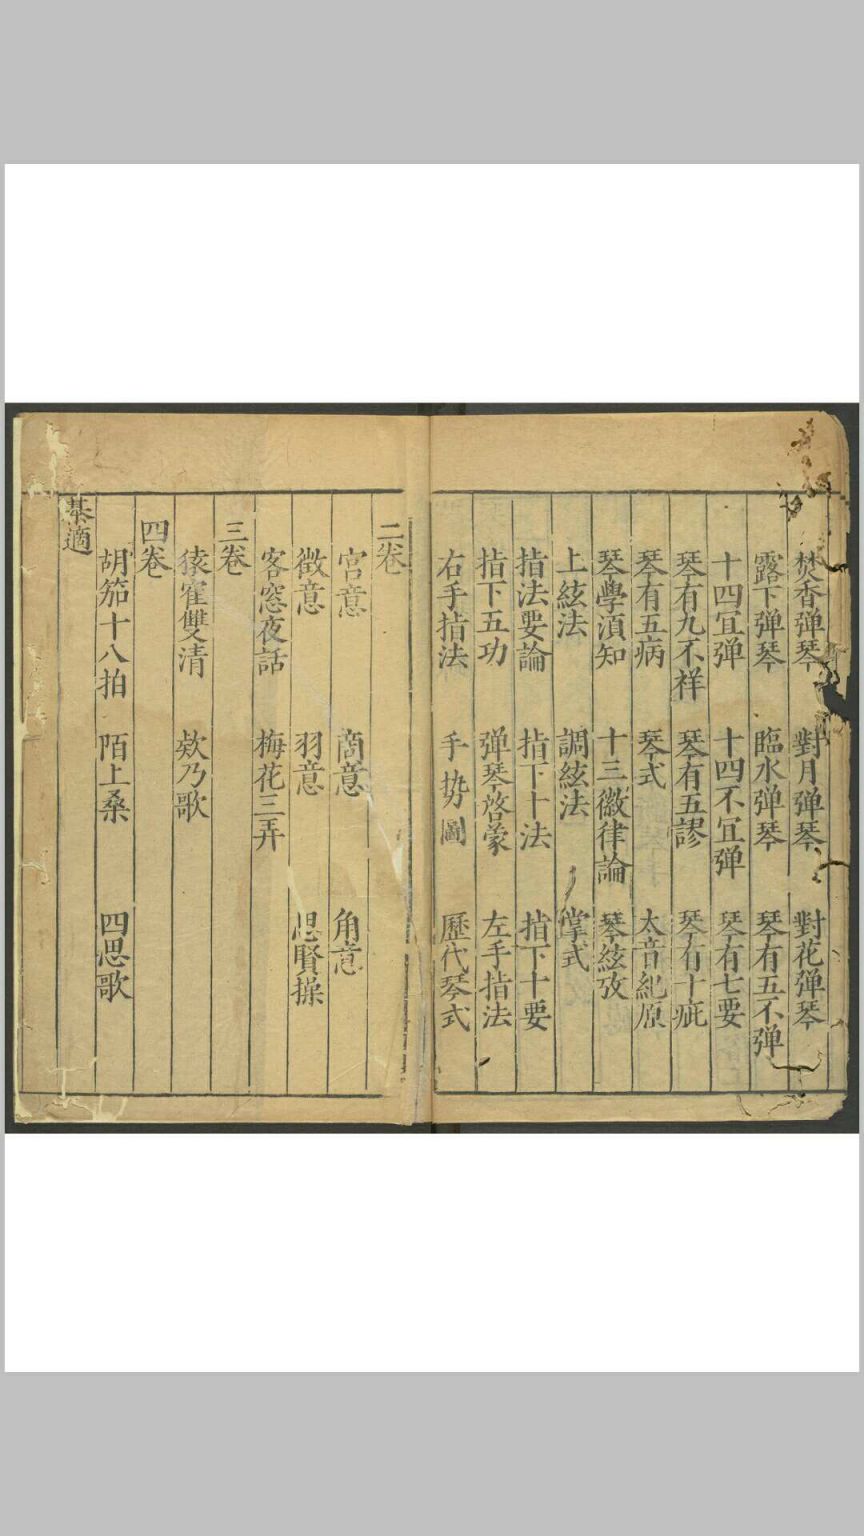 焚香弹琴　對月弹琴　對花弹琴
露下弹琴　臨水弹琴　琴有五不弹
十四冝弹　十四不冝弹　琴有七要
琴有九不祥　琴有五謬　琴有十疵
琴有五病　琴式　太音紀原
琴學湏知　十三徽律論　琴絃攷
上絃法　調絃法　掌式
指法要論　指下十法　指下十要
指下五功　弹琴啓蒙　左手指法
右手指法　手势圖　歷代琴式
二卷
宫意　商意　角意
徵意　羽意　思賢操
客窓夜話　梅花三弄
三卷
猿寉雙清　欸乃歌
四卷
胡笳十八拍　陌上桑　四思歌
棊適